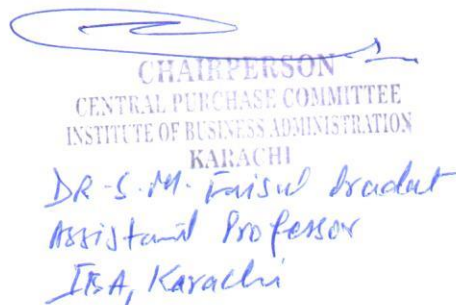 CHAIRPERSON
CENTRAL PURCHASE COMMITTEE
INSTITUTE OF BUSINESS ADMINISTRATION
KARACHI
DR. S. M. Faisal
Assistant Professor
IBA, Karachi